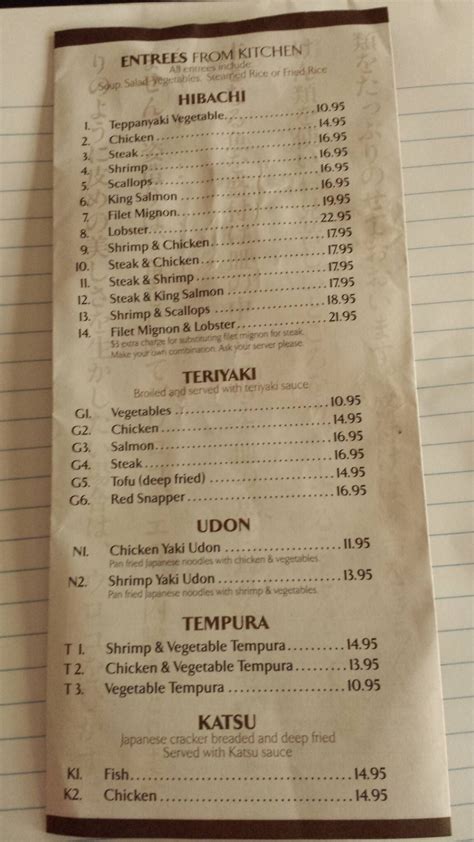 ENTREES FROM KITCHEN
All entrees include:
Soup, Salad, Vegetables, Steamed Rice or Fried Rice
HIBACHI
1. Teppanyaki Vegetable..................10.95
2. Chicken..................14.95
3. Steak..................16.95
4. Shrimp..................16.95
5. Scallops..................16.95
6. King Salmon..................16.95
7. Filet Mignon..................19.95
8. Lobster..................22.95
9. Shrimp & Chicken..................17.95
10. Steak & Chicken..................17.95
11. Steak & Shrimp..................17.95
12. Steak & King Salmon..................17.95
13. Shrimp & Scallops..................18.95
14. Filet Mignon & Lobster..................21.95
$5 extra charge for substituting filet mignon for steak.
Make your own combination. Ask your server please.
TERIYAKI
Broiled and served with teriyaki sauce
G1. Vegetables..................10.95
G2. Chicken..................14.95
G3. Salmon..................16.95
G4. Steak..................16.95
G5. Tofu (deep fried)..................14.95
G6. Red Snapper..................16.95
UDON
N1. Chicken Yaki Udon..................11.95
Pan fried Japanese noodles with chicken & vegetables.
N2. Shrimp Yaki Udon..................13.95
Pan fried Japanese noodles with shrimp & vegetables.
TEMPURA
T 1. Shrimp & Vegetable Tempura..........14.95
T 2. Chicken & Vegetable Tempura..........13.95
T 3. Vegetable Tempura..................10.95
KATSU
Japanese cracker breaded and deep fried
Served with Katsu sauce
K1. Fish..................14.95
K2. Chicken..................14.95